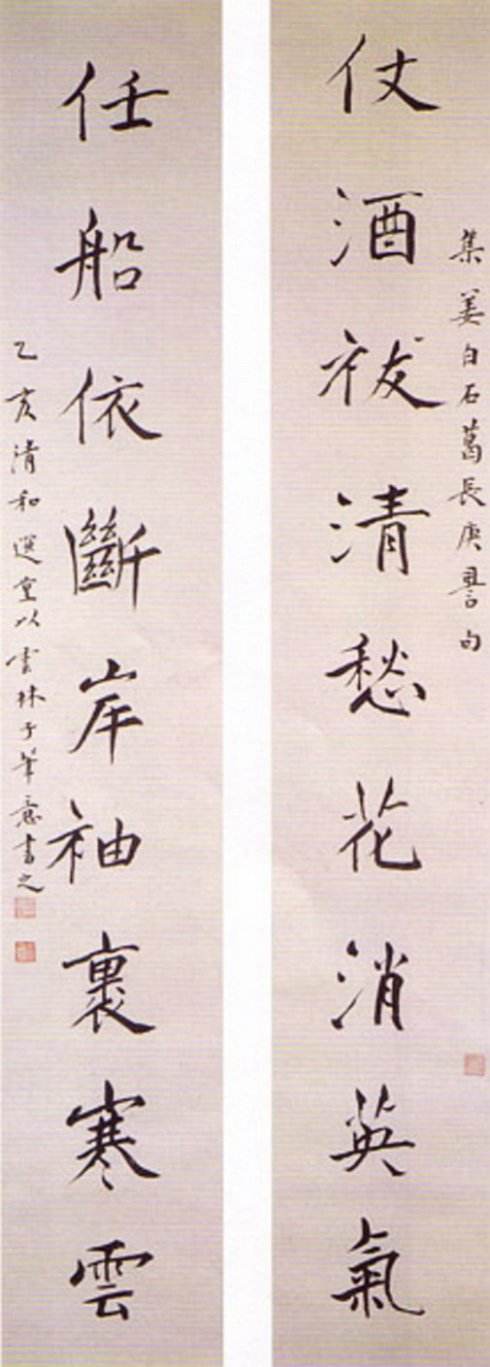 集姜白石葛長庚䛐句
仗酒祓清愁花消英氣
任船依斷岸袖裹寒雲
乙亥清和選堂以雲林子筆意書之